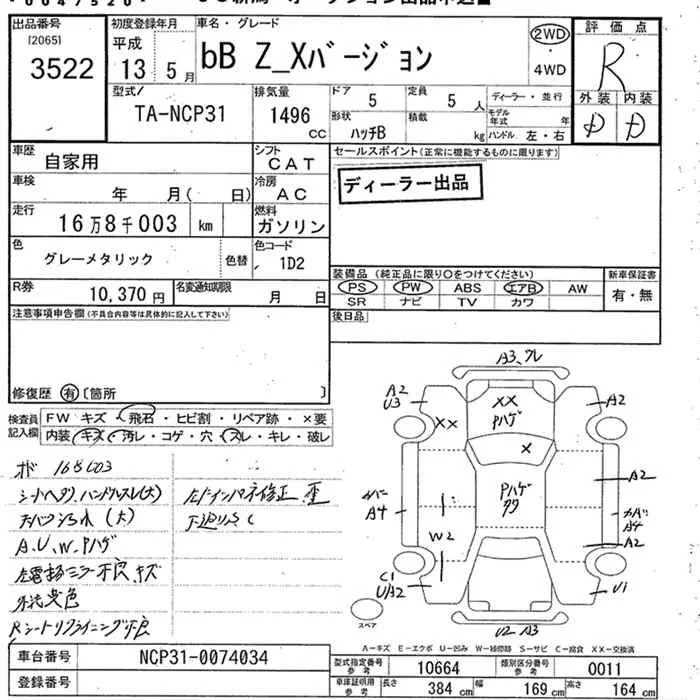 出品番号
[2065]
3522
初度登録年月
平成
13 5月
車名・グレード
bB Z_Xバージョン
2WD
4WD
評価点
R
外装 内装
D D
型式/
TA-NCP31
排気量
1496
CC
ドア 5
定員 5 人
ディーラー・並行
形状 ハッチB
積載 kg
モデル年式 年
ハンドル 左・右
車歴
自家用
シフト
CAT
セールスポイント(正常に機能するものに限ります)
ディーラー出品
車検
年 月( 日)
冷房
AC
走行
16万8千003 km
燃料
ガソリン
色
グレーメタリック
色替
色コード
1D2
装備品 (純正品に限り○をつけてください)
新車保証書
PS PW ABS エアB AW
SR ナビ TV カワ
有・無
R券
10,370 円
名変通知期限
月 日
後日品
注意事項申告欄(不具合内容等は具体的に記入して下さい)
修復歴 有 〔箇所 〕
検査員記入欄
FW キズ・飛石・ヒビ割・リペア跡・×要
内装 キズ・汚レ・コゲ・穴・スレ・キレ・破レ
168003
シートヘタリ、ハンドルスレ(大)
(大)
A、U、W、Pハゲ
ミラー不良、キズ
Rシートリクライニング不良
左インパネ修正 歪
A3、
A2
U3
XX
XX
Pハゲ
A2
X
Pハゲ
A4
W2
A2
カバー
A4
A2
C1
U/A2
U1
U2 A3
スペア
A=キズ E=エクボ U=凹み W=補修跡 S=サビ C=腐食 XX=交換済
車台番号
NCP31-0074034
登録番号
型式指定番号 参考
10664
類別区分番号 参考
0011
車庫証明用 参考
長さ 384 cm
幅 169 cm
高さ 164 cm